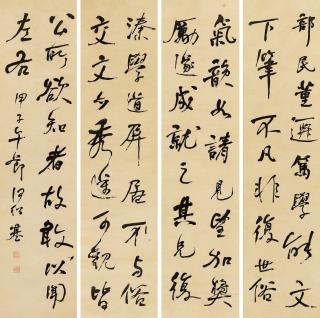 部民董遷篤學能文
下筆不凡非復世俗
氣韻如請見望加獎
勵遂成就之其兄復
湊學道屏居不與俗
交文亦秀邁可觀皆
公所欲知者故敢以聞
左右 甲子午節